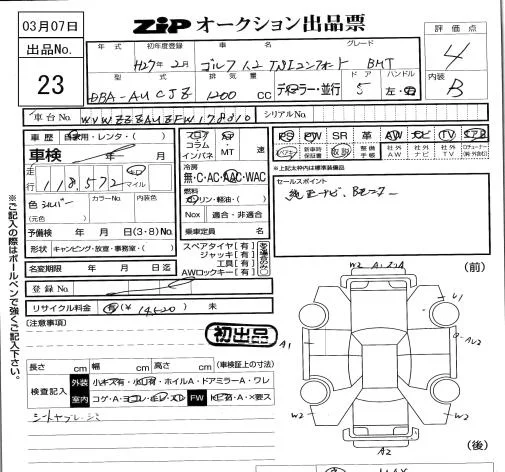 03月07日
ZIP オークション出品票
出品No.
23
評価点
4
内装
B
年式 初年度登録 車名 グレード
H27年2月 ゴルフ 1.2 TSIコンフォート BMT
型式 排気量 ドア ハンドル
DBA-AUCJZ 1200 cc ディーラー・並行 5 左・右
車台No. WVWZZZAUZFW178310
シリアルNo.
車歴 自家用・レンタ・( )
車検 年 月
走行 118,572 キロ マイル
色 シルバー カラーNo. 内装色
(元色)
予備検 年 月 日(3・8)No.
形状 キャンピング・放宣・事務室・( )
名変期限 年 月 日迄
登録No.
リサイクル料金 有(¥ ) 未
(注意事項)
フロア
コラム
インパネ
MT
速
冷房
無・C・AC・AAC・WAC
燃料
ガソリン・軽油・( )
Nox 適合・非適合
乗車定員 名
スペアタイヤ[有]
ジャッキ[有]
工具[有]
AWロックキー[有]
PS PW SR 革 AW ナビ TV エアB
新車時保証書 取説 整備手帳 社外AW 社外ナビ 社外TV
※上記太枠内は標準装備品
セールスポイント
純正ナビ、Bモニター
初出品
※ご記入の際はボールペンで強くご記入下さい。
長さ cm 幅 cm 高さ cm (車検証上の寸法)
検査記入
外装 小キズ有・小凹有・ホイルA・ドアミラーA・ワレ
室内 コゲ・A・ヨゴレ・キレ・スレ FW トビ石・A・×要ス
(前)
W2
U1
A1
W2
W2
A2
(後)